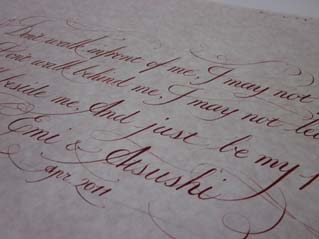 Dont walk infront of me, I may not
Dont walk behind me, I may not
beside me, And just be my
Emi & Atsushi
Apr 2011